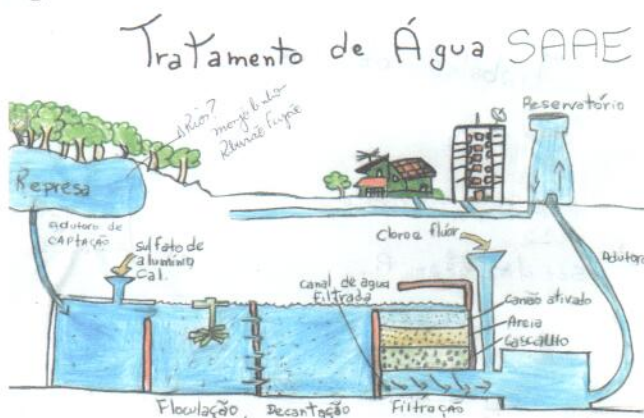 Tratamento de Água SAAE
Rios?
monjolinho
Ribeirão Feijão
Reservatório
Represa
adutora de
CAPTAÇÃO
sulfato de
alumínio
Cal.
Cloro e flúor
Adutora
canal de agua
Filtrada
Canão ativado
Areia
Cascalho
Floculação
Decantação
Filtração